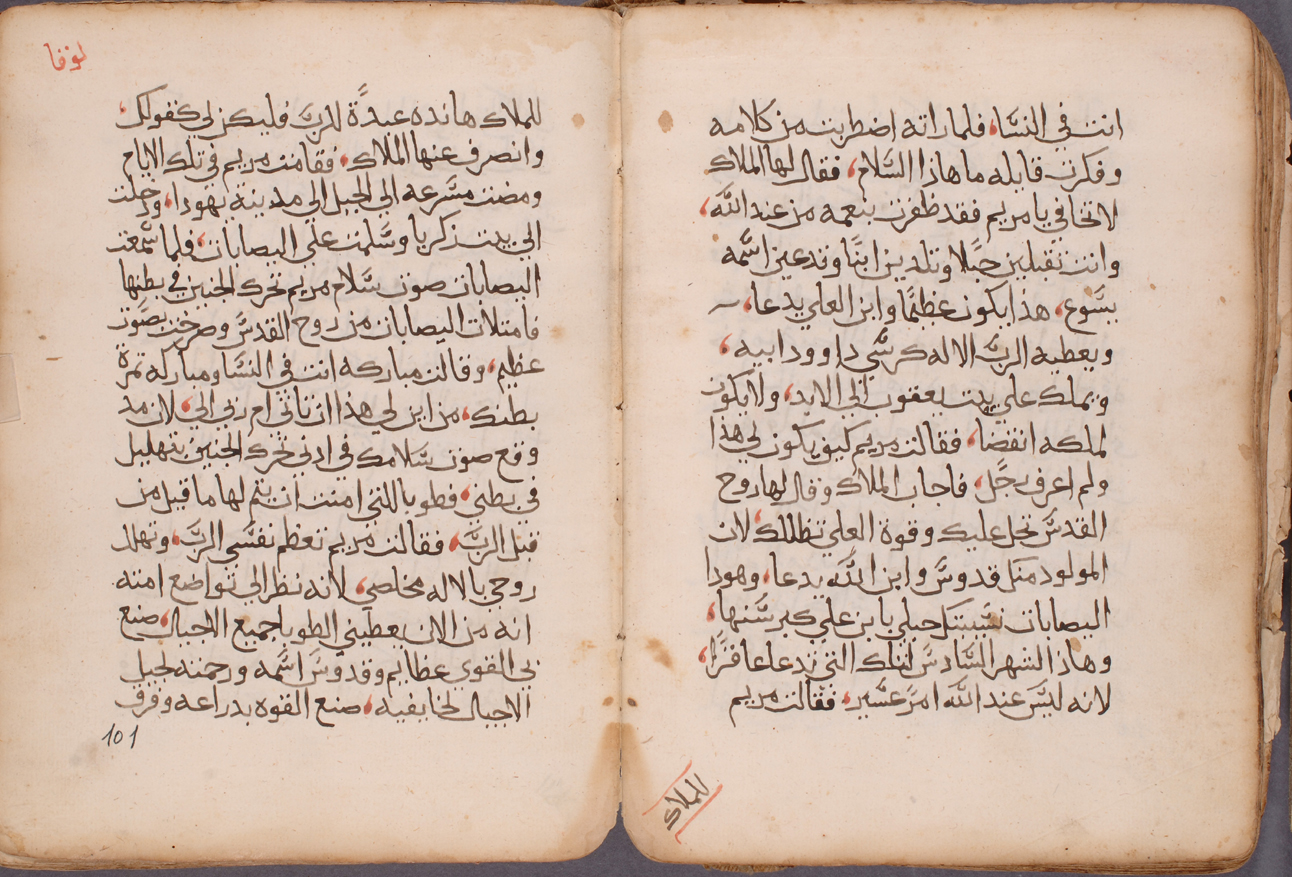 انت في النسا، فلما راته اضطربت من كلامه
وفكرت قايله ما هاذا السلام، فقال لها الملاك
لا تخافي يا مريم فقد ظفرت بنعمه من عند الله،
وانت تقبلين حبلا وتلدين ابنًا وتدعين اسمه
يسوع، هذا يكون عظيمًا وابن العلي يدعا،
ويعطيه الرب الاله كرسي داوود ابيه،
ويملك علي بيت يعقوب الي الابد، ولا يكون
لملكه انقضا، فقالت مريم كيف يكون لي هذا
ولم اعرف رجل، فاجاب الملاك وقال لها روح
القدس تحل عليك وقوة العلي تظللك، لان
المولود منك قدوس وابن الله يدعا، وهودا
اليصابات نسيبتك حبلي بابن علي كبر سنها،
وهاذا الشهر السادس لتلك التي تدعا عاقرًا،
لانه ليس عند الله امر عسير، فقالت مريم
للملاك
لوقا
للملاك هانده عبدة للرب فليكن لي كقولك،
وانصرف عنها الملاك، فقامت مريم في تلك الايام
ومضت مسرعه الي الجبل الي مدينة يهودا، ودخلت
الي بيت زكريا وسلمت علي اليصابات، فلما سمعت
اليصابات صوت سلام مريم تحرك الجنين في بطنها
فامتلات اليصابات من روح القدس وصرخت بصوت
عظيم، وقالت مباركه انت في النسا ومباركه تمرة
بطنك، من اين لي هذا ان تاتي ام ربي الي، لان مد
وقع صوت سلامك في ادني تحرك الجنين بتهليل
في بطني، فطوبا للتي امنت ان يتم لها ما قيل من
قبل الرب، فقالت مريم تعظم نفسي الرب، وتهلل
روحي بالاله مخلصي، لانه نظر الي تواضع امته
انه من الان يعطيني الطوبا جميع الاجيال، صنع
بي القوي عظايم وقدوس اسمه ورحمته لجيل
الاجيال لخايفيه، صنع القوه بدراعه وفرق
101